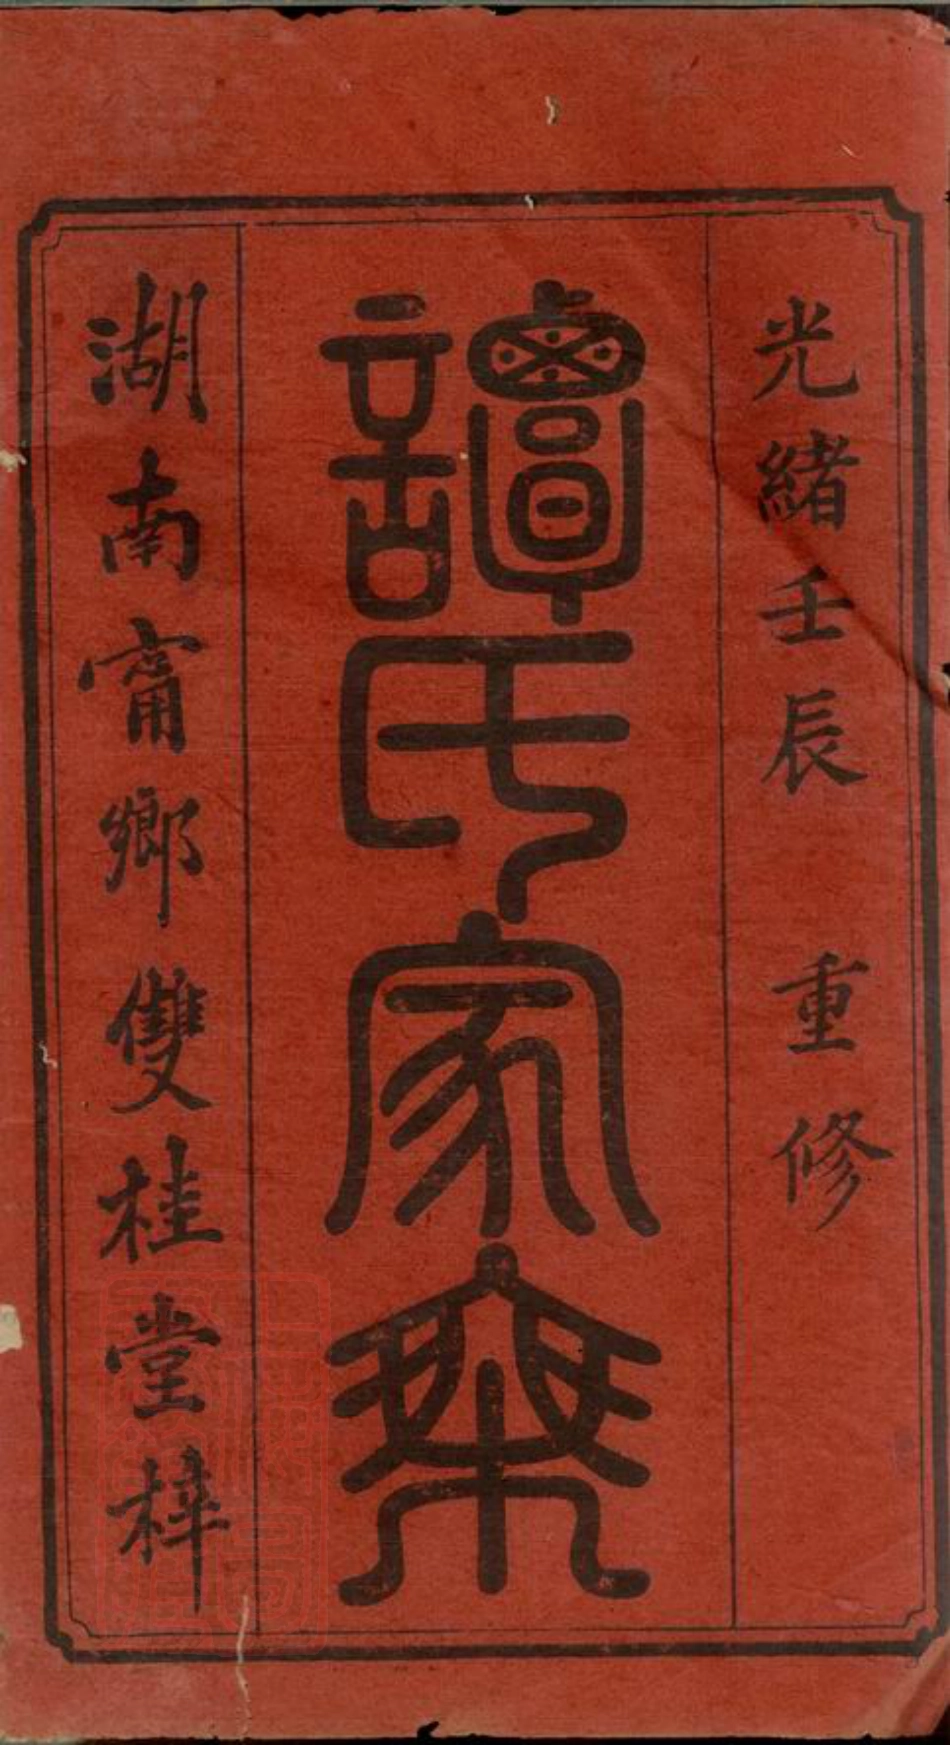 光緒壬辰 重修
譚氏家乘
湖南甯鄉雙桂堂梓